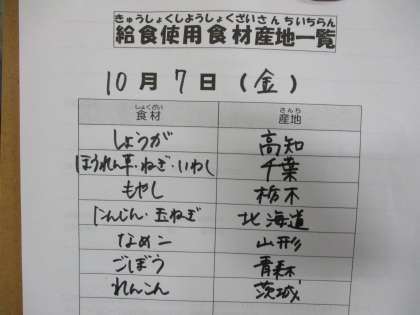 きゅうしょくしようしょくざいさんちいちらん
給食使用食材産地一覧
10月7日(金)
しょくざい さんち
食材 産地
しょうが 高知
ほうれん草・ねぎ・いわし 千葉
もやし 栃木
にんじん・玉ねぎ 北海道
なめこ 山形
ごぼう 青森
れんこん 茨城